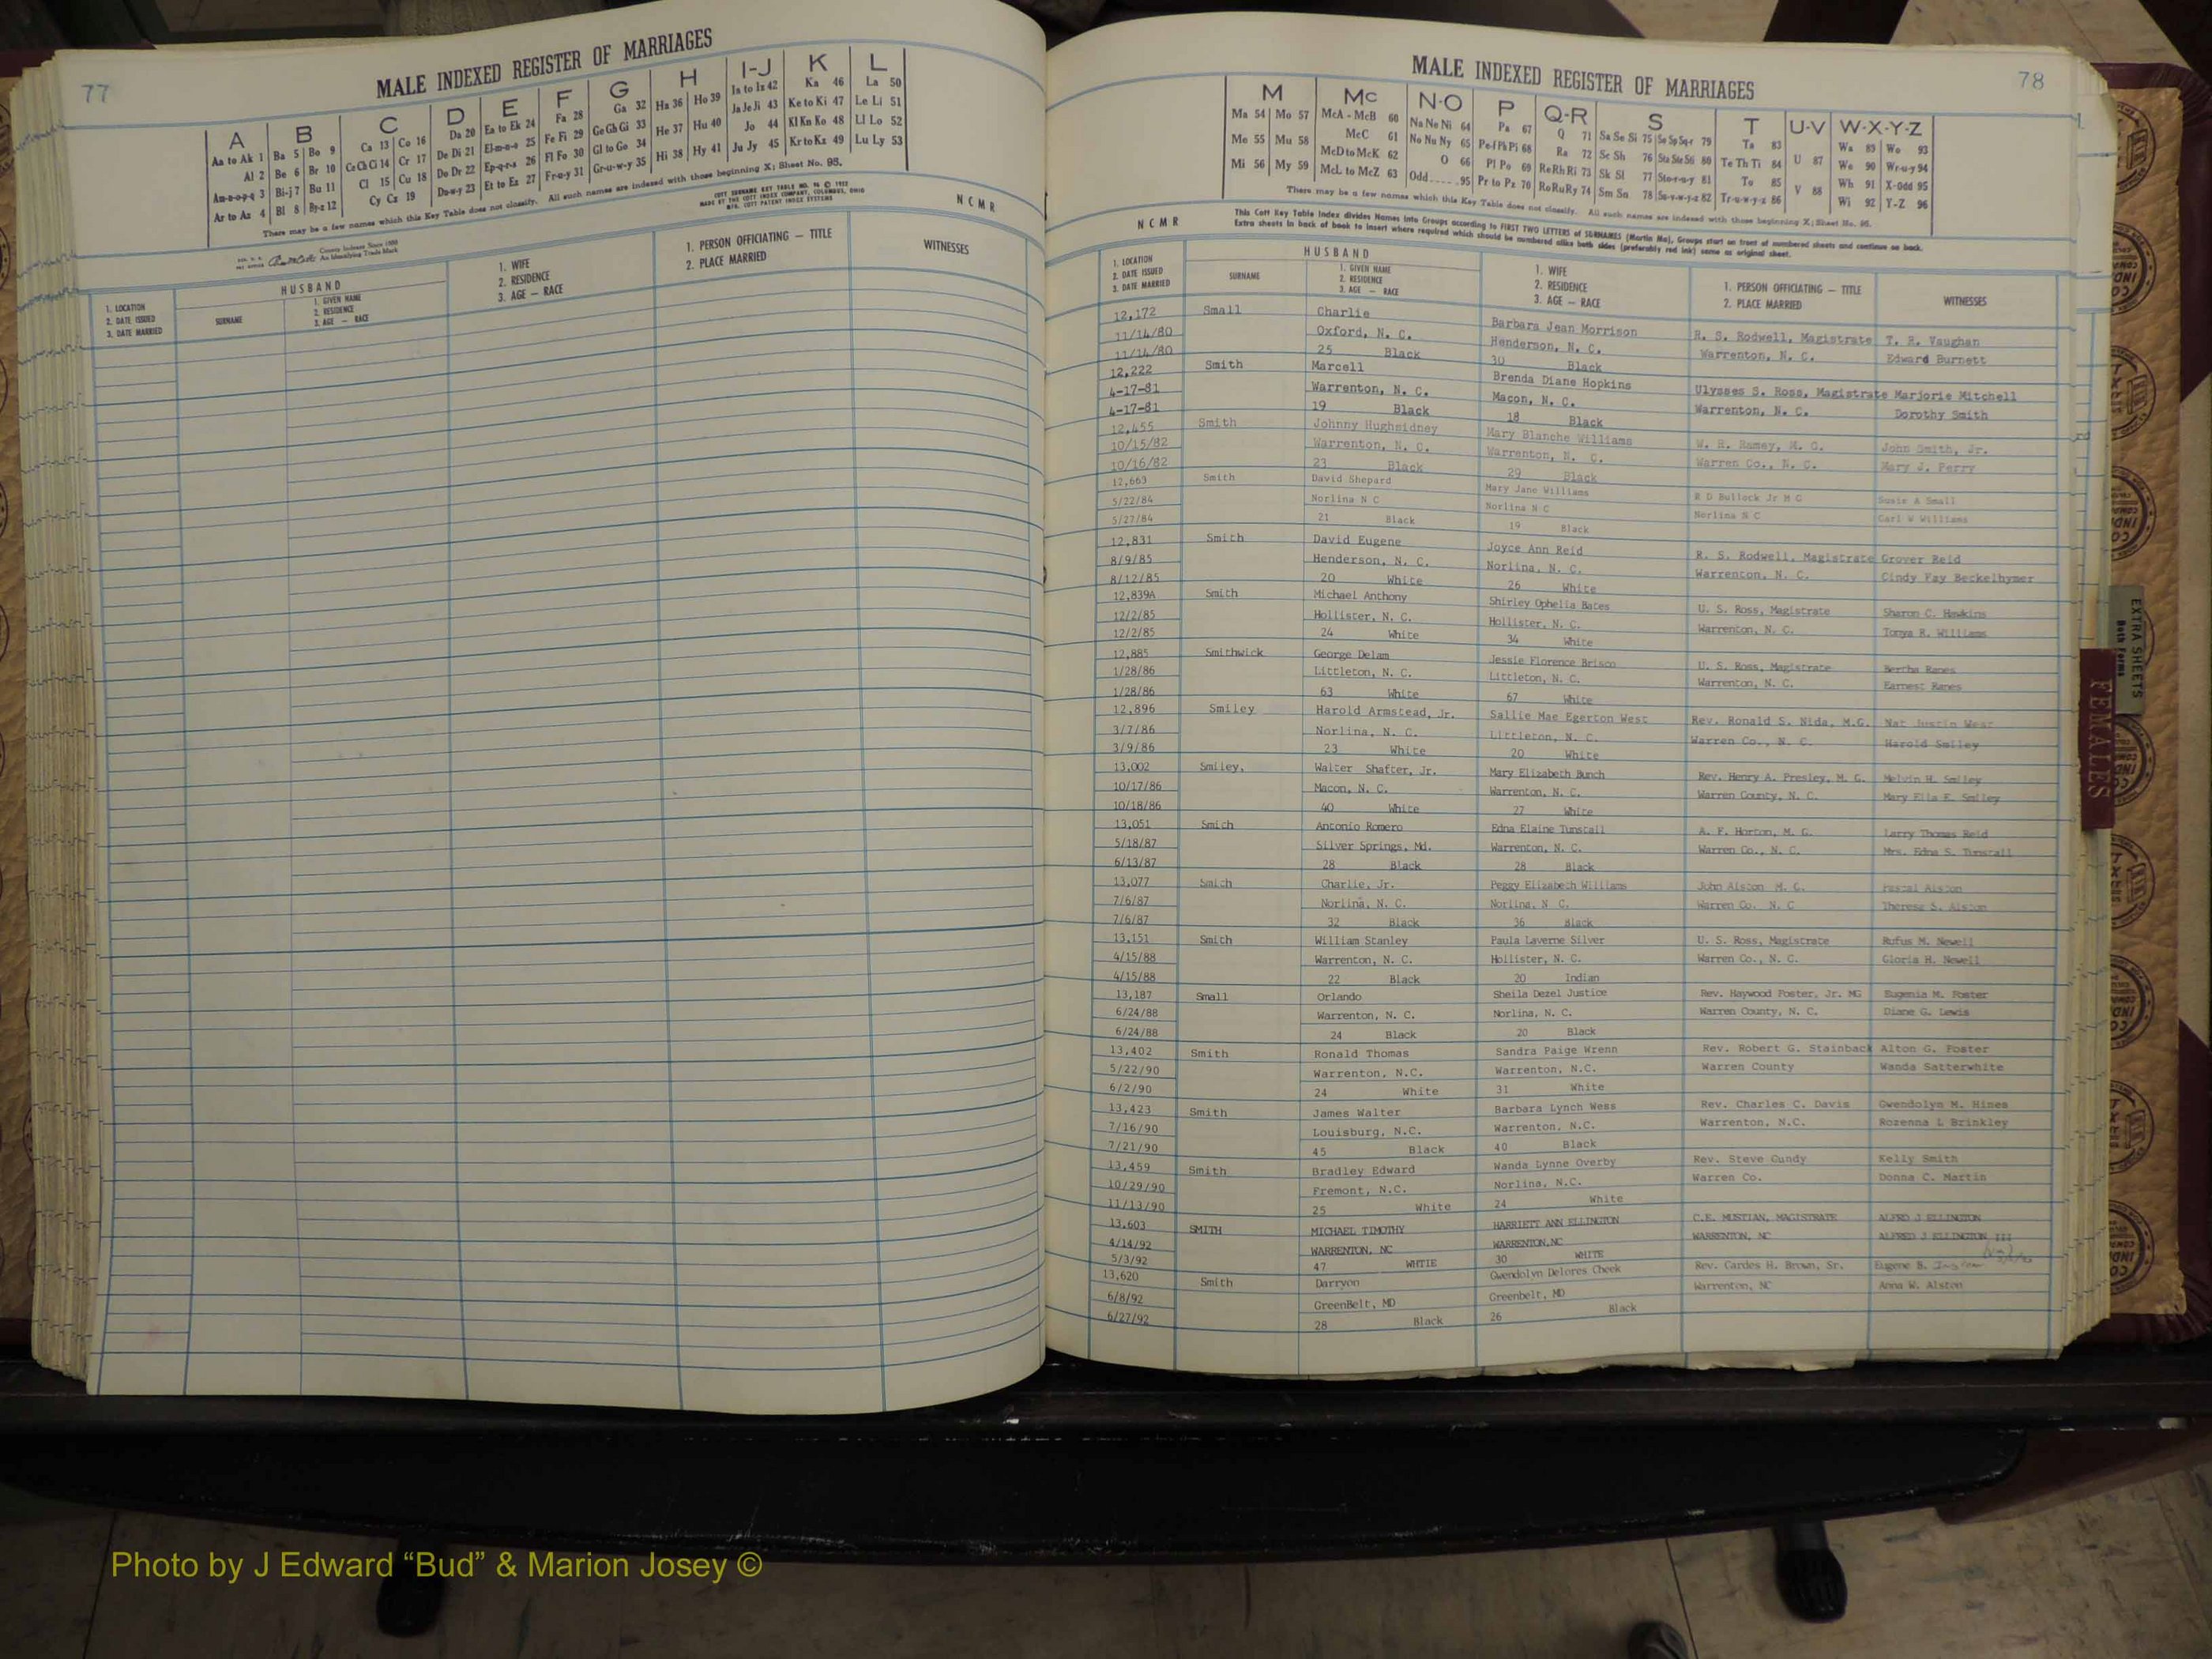 77
MALE INDEXED REGISTER OF MARRIAGES
A B C D E F G H I-J K L
Aa to Ak 1 Ba 5 Bo 9 Ca 13 Co 16 Da 20 Ea to Ek 24 Fa 28 Ga 32 Ha 36 Ho 39 Ia to Iz 42 Ka 46 La 50
Al 2 Be 6 Br 10 Ce Ch Ci 14 Cr 17 De Di 21 El-m-n-o 25 Fe Fi 29 Ge Gh Gi 33 He 37 Hu 40 Ja Je Ji 43 Ke to Ki 47 Le Li 51
Am-n-o-p-q 3 Bi-j 7 Bu 11 Cl 15 Cu 18 Do Dr 22 Ep-q-r-s 26 Fl Fo 30 Gl to Go 34 Hi 38 Hy 41 Jo 44 Kl Kn Ko 48 Ll Lo 52
Ar to Az 4 Bl 8 By-z 12 Cy Cz 19 Du-w-y 23 Et to Ez 27 Fr-u-y 31 Gr-u-w-y 35 Ju Jy 45 Kr to Kz 49 Lu Ly 53
There may be a few names which this Key Table does not classify. All such names are indexed with those beginning X; Sheet No. 95.
COTT SURNAME KEY TABLE NO. 96 © 1952
MADE BY THE COTT INDEX COMPANY, COLUMBUS, OHIO
MFR. COTT PATENT INDEX SYSTEMS
NCMR
County Indexes Since 1888
An Identifying Trade Mark
1. LOCATION
2. DATE ISSUED
3. DATE MARRIED
HUSBAND
SURNAME
1. GIVEN NAME
2. RESIDENCE
3. AGE — RACE
1. WIFE
2. RESIDENCE
3. AGE — RACE
1. PERSON OFFICIATING — TITLE
2. PLACE MARRIED
WITNESSES
78
MALE INDEXED REGISTER OF MARRIAGES
M Mc N-O P Q-R S T U-V W-X-Y-Z
Ma 54 Mo 57 McA - McB 60 Na Ne Ni 64 Pa 67 Q 71 Sa Se Si 75 So Sp Sq-r 79 Ta 83 Wa 89 Wo 93
Me 55 Mu 58 McC 61 No Nu Ny 65 Pe-f Ph Pi 68 Ra 72 Sc Sh 76 Sta Ste Sti 80 Te Th Ti 84 U 87 We 90 Wr-u-y 94
Mi 56 My 59 McD to McK 62 O 66 Pl Po 69 Re Rh Ri 73 Sk Sl 77 Sto-r-u-y 81 To 85 V 88 Wh 91 X-Odd 95
McL to McZ 63 Odd.....95 Pr to Pz 70 Ro Ru Ry 74 Sm Sn 78 Su-v-w-y-z 82 Tr-u-w-y-z 86 Wi 92 Y-Z 96
There may be a few names which this Key Table does not classify. All such names are indexed with those beginning X; Sheet No. 95.
NCMR
This Cott Key Table Index divides Names into Groups according to FIRST TWO LETTERS of SURNAMES (Martin Ma), Groups start on front of numbered sheets and continue on back.
Extra sheets in back of book to insert where required which should be numbered alike both sides (preferably red ink) same as original sheet.
1. LOCATION
2. DATE ISSUED
3. DATE MARRIED
HUSBAND
SURNAME
1. GIVEN NAME
2. RESIDENCE
3. AGE — RACE
1. WIFE
2. RESIDENCE
3. AGE — RACE
1. PERSON OFFICIATING — TITLE
2. PLACE MARRIED
WITNESSES
12,172 Small Charlie Barbara Jean Morrison R. S. Rodwell, Magistrate T. R. Vaughan
11/14/80 Oxford, N. C. Henderson, N. C. Warrenton, N. C. Edward Burnett
11/14/80 25 Black 30 Black
12,222 Smith Marcell Brenda Diane Hopkins Ulysses S. Ross, Magistrate Marjorie Mitchell
4-17-81 Warrenton, N. C. Macon, N. C. Warrenton, N. C. Dorothy Smith
4-17-81 19 Black 18 Black
12,455 Smith Johnny Hughsidney Mary Blanche Williams W. H. Ramey, M. G. John Smith, Jr.
10/15/82 Warrenton, N. C. Warrenton, N. C. Warren Co., N. C. Mary J. Perry
10/16/82 23 Black 29 Black
12,663 Smith David Shepard Mary Jane Williams R D Bullock Jr M G Susie A Small
5/22/84 Norlina N C Norlina N C Norlina N C Carl W Williams
5/27/84 21 Black 19 Black
12,831 Smith David Eugene Joyce Ann Reid R. S. Rodwell, Magistrate Grover Reid
8/9/85 Henderson, N. C. Norlina, N. C. Warrenton, N. C. Cindy Fay Beckelhymer
8/12/85 20 White 26 White
12,839A Smith Michael Anthony Shirley Ophelia Bates U. S. Ross, Magistrate Sharon C. Hawkins
12/2/85 Hollister, N. C. Hollister, N. C. Warrenton, N. C. Tonya R. Williams
12/2/85 24 White 34 White
12,885 Smithwick George Delam Jessie Florence Brisco U. S. Ross, Magistrate Bertha Ranes
1/28/86 Littleton, N. C. Littleton, N. C. Warrenton, N. C. Earnest Ranes
1/28/86 63 White 67 White
12,896 Smiley Harold Armstead, Jr. Sallie Mae Egerton West Rev. Ronald S. Nida, M.G. Nat Justin West
3/7/86 Norlina, N. C. Littleton, N. C. Warren Co., N. C. Harold Smiley
3/9/86 23 White 20 White
13,002 Smiley, Walter Shafter, Jr. Mary Elizabeth Bunch Rev. Henry A. Presley, M. G. Melvin H. Smiley
10/17/86 Macon, N. C. Warrenton, N. C. Warren County, N. C. Mary Ella E. Smiley
10/18/86 40 White 27 White
13,051 Smith Antonio Romero Edna Elaine Tunstall A. F. Horton, M. G. Larry Thomas Reid
5/18/87 Silver Springs, Md. Warrenton, N. C. Warren Co., N. C. Mrs. Edna S. Tunstall
6/13/87 28 Black 28 Black
13,077 Smith Charlie, Jr. Peggy Elizabeth Williams John Alston M. G. Pascal Alston
7/6/87 Norlina, N. C. Norlina, N C. Warren Co. N. C Theresa S. Alston
7/6/87 32 Black 36 Black
13,151 Smith William Stanley Paula Laverne Silver U. S. Ross, Magistrate Rufus M. Newell
4/15/88 Warrenton, N. C. Hollister, N. C. Warren Co., N. C. Gloria H. Newell
4/15/88 22 Black 20 Indian
13,187 Small Orlando Sheila Dezel Justice Rev. Haywood Foster, Jr. MG Eugenia M. Foster
6/24/88 Warrenton, N. C. Norlina, N. C. Warren County, N. C. Diane G. Lewis
6/24/88 24 Black 20 Black
13,402 Smith Ronald Thomas Sandra Paige Wrenn Rev. Robert G. Stainback Alton G. Foster
5/22/90 Warrenton, N.C. Warrenton, N.C. Warren County Wanda Satterwhite
6/2/90 24 White 31 White
13,423 Smith James Walter Barbara Lynch Wess Rev. Charles C. Davis Gwendolyn M. Hines
7/16/90 Louisburg, N.C. Warrenton, N.C. Warrenton, N.C. Rozenna L Brinkley
7/21/90 45 Black 40 Black
13,459 Smith Bradley Edward Wanda Lynne Overby Rev. Steve Gundy Kelly Smith
10/29/90 Fremont, N.C. Norlina, N.C. Warren Co. Donna C. Martin
11/13/90 25 White 24 White
13,603 SMITH MICHAEL TIMOTHY HARRIETT ANN ELLINGTON C.E. MUSTIAN, MAGISTRATE ALFRD J ELLINGTON
4/14/92 WARRENTON, NC WARRENTON,NC WARRENTON, NC ALFRED J ELLINGTON III
5/3/92 47 WHTIE 30 WHITE
13,620 Smith Darryon Gwendolyn Delores Cheek Rev. Cardes H. Brown, Sr. Eugene B.
6/8/92 GreenBelt, MD Greenbelt, MD Warrenton, NC Anna W. Alston
6/27/92 28 Black 26 Black
EXTRA SHEETS
Both Forms
FEMALES
Photo by J Edward “Bud” & Marion Josey ©